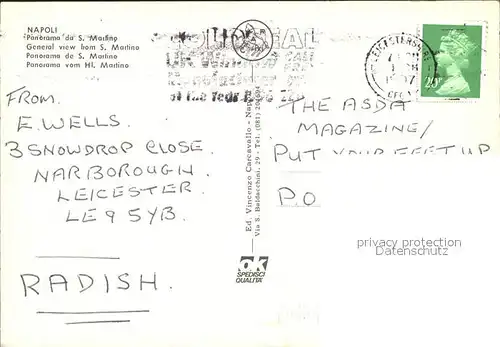 NAPOLI
Panorama da S. Martino
General view from S. Martino
Panorama de S. Martino
Panorama vom Hl. Martino
FROM.
E. WELLS.
3 SNOWDROP CLOSE.
NARBOROUGH.
LEICESTER.
LE9 5YB.
RADISH.
Ed. Vincenzo Carcavallo - Nap
Via S. Baldacchini, 29 - Tel. (081)
OK
SPEDISCI
QUALITA'
LEICESTERSHIRE
20P
THE ASDA
MAGAZINE/
PUT YOUR FEET UP
P.O
privacy protection
Datenschutz
of the Year